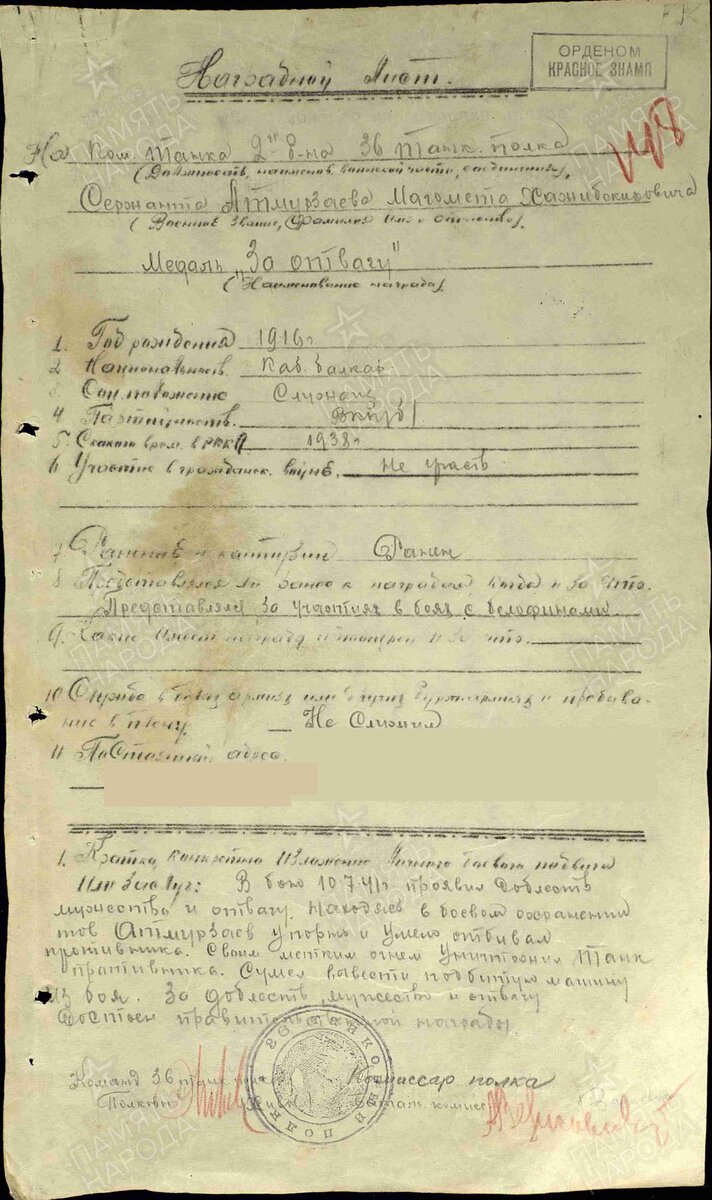 ОРДЕНОМ
КРАСНОЕ ЗНАМЯ
Наградной Лист.
На Ком. танка 2го б-на 36 танк. полка
(Должность, наименов. воинской части, соединения)
Сержанта Атмурзаева Магомета Хажибекировича
(Военное звание, Фамилия Имя и отчество).
Медаль „За отвагу"
(Наименование награды)
1. Год рождения 1916г
2 Национальность Каб. балкар
3. Соц. положение Служащ
4 Партийность. ВКП(б)
5. С какого врем. в РККА 1938г
6 Участие в гражданск. войне. Не участв.
7 Ранения и контузии Ранен
8 Представлялся ли ранее к наградам, когда и за что.
Представлялся за участия в боях с белофинами.
9. Какие имеет награды и за что.
10 Служба в белых армиях или других бурж. армиях и пребыва-
ние в плену. Не Служил
11 Постоянный адрес.
1. Кратко, конкретное Изложение Личного боевого подвига
Или Заслуг: В бою 10.7.41г проявил доблесть
мужество и отвагу. Находясь в боевом охранении
тов Атмурзаев упорно и умело отбивал
противника. Своим метким огнем Уничтожил танк
противника. Сумел вывести подбитую машину
Из боя. За доблесть, мужество и отвагу
Достоен правительственной награды.
Команд 36 танк. полка Комиссар полка
Полковн Баталь. комисс